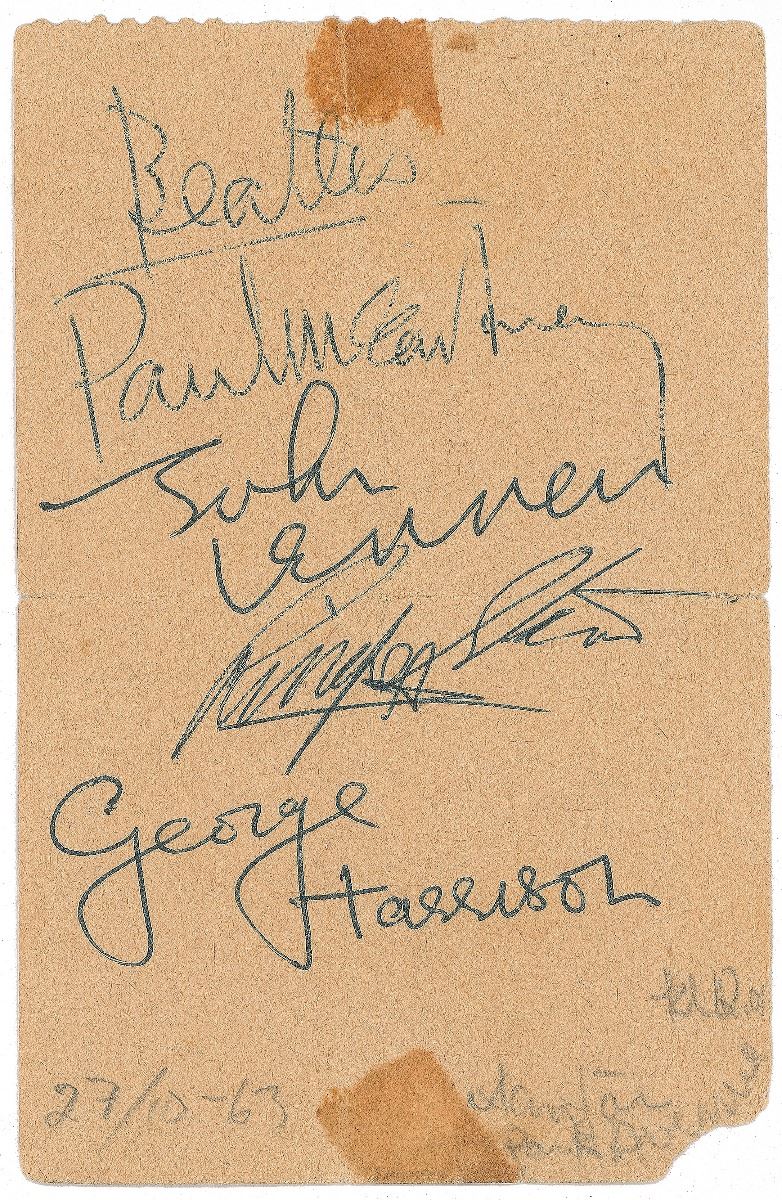 Beatles
Paul McCartney
John
Lennon
Ringo Starr
George
Harrison
27/10-63